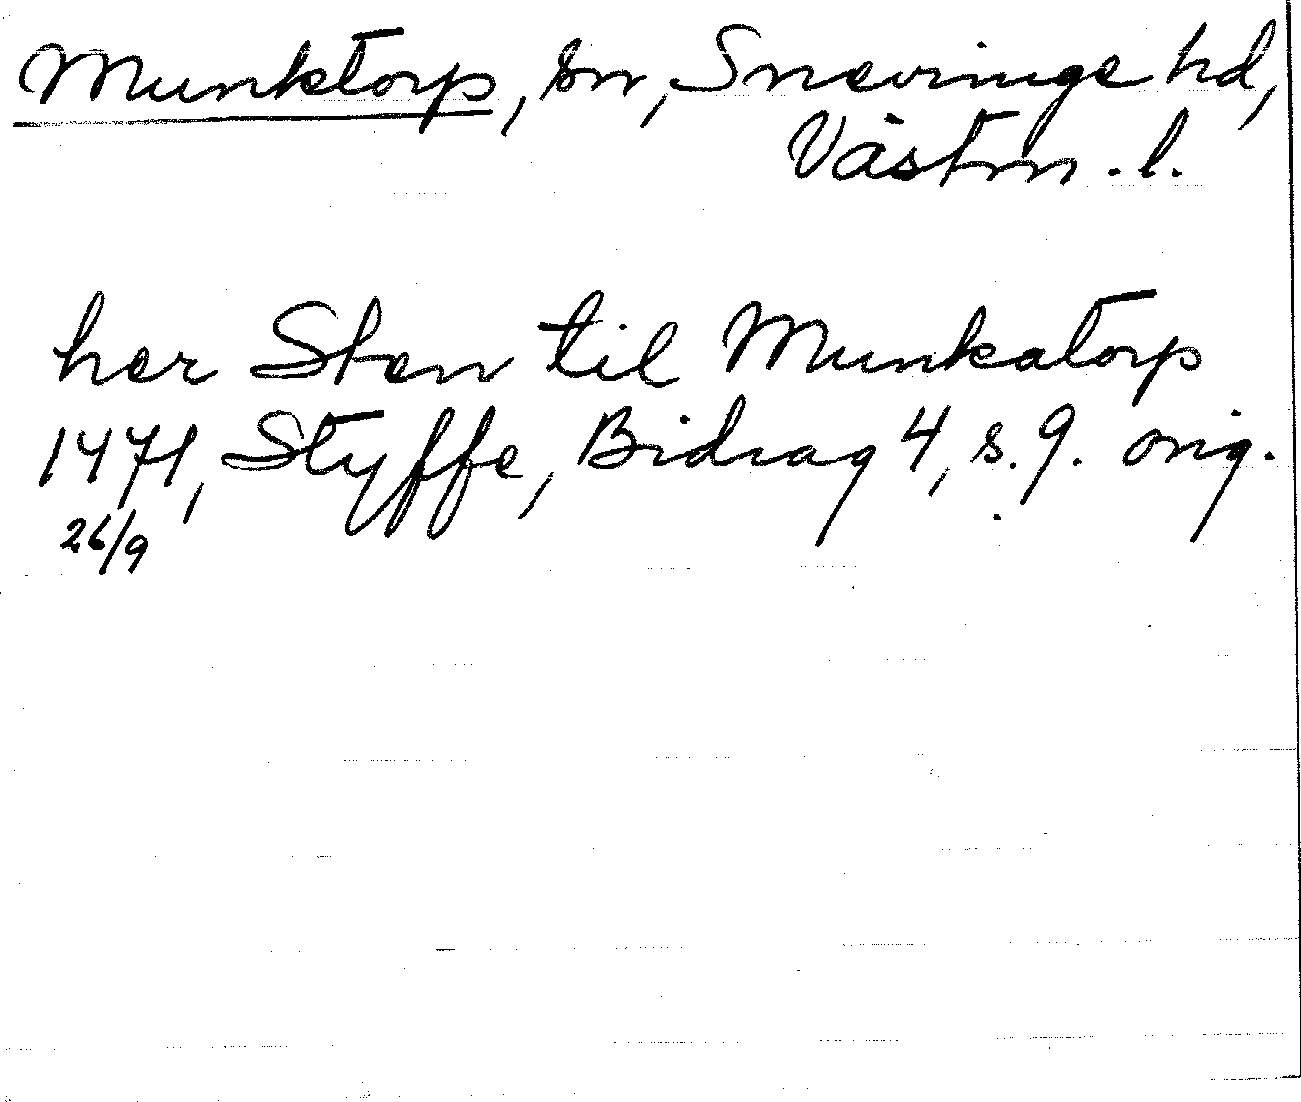 Munktorp, sn, Snevringe hd,
Västm. l.
her Sten til Munkatorp
1471, Styffe, Bidrag 4, s. 9. orig.
26/9